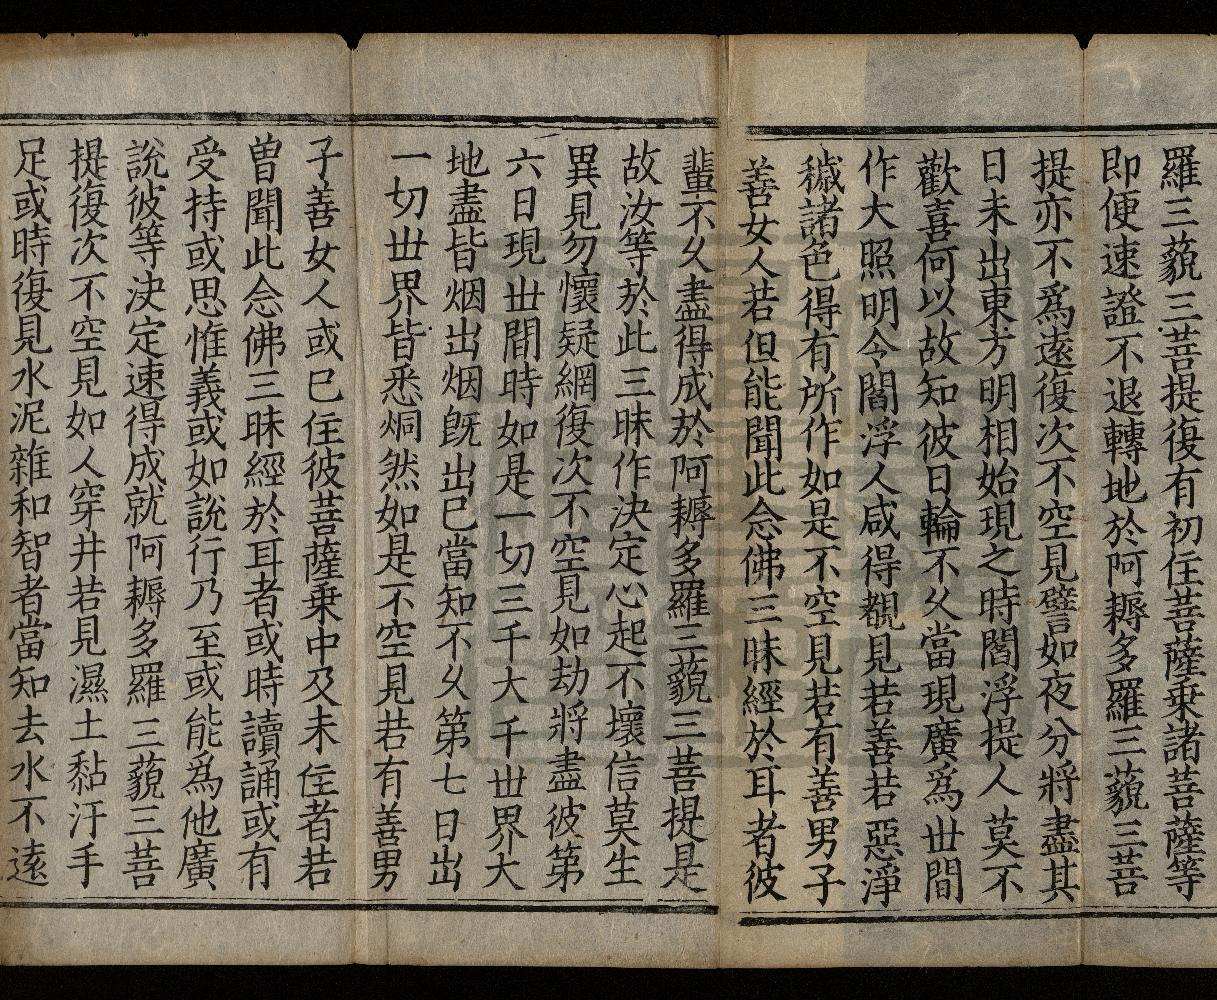 羅三藐三菩提復有初住菩薩乗諸菩薩等
即便速證不退轉地於阿耨多羅三藐三菩
提亦不爲遠復次不空見譬如夜分將盡其
日未出東方明相始現之時閻浮提人莫不
歡喜何以故知彼日輪不乆當現廣爲丗間
作大照明令閻浮人咸得覩見若善若惡淨
穢諸色得有所作如是不空見若有善男子
善女人若但能聞此念佛三昧經於耳者彼
輩不乆盡得成於阿耨多羅三藐三菩提是
故汝等於此三昧作決定心起不壞信莫生
異見勿懷疑網復次不空見如劫將盡彼第
六日現丗間時如是一切三千大千丗界大
地盡皆烟出烟旣出巳當知不乆第七日出
一切丗界皆悉烔然如是不空見若有善男
子善女人或巳住彼菩薩乗中及未住者若
曽聞此念佛三昧經於耳者或時讀誦或有
受持或思惟義或如說行乃至或能爲他廣
說彼等決定速得成就阿耨多羅三藐三菩
提復次不空見如人穿井若見濕土黏汙手
足或時復見水泥雜和智者當知去水不遠